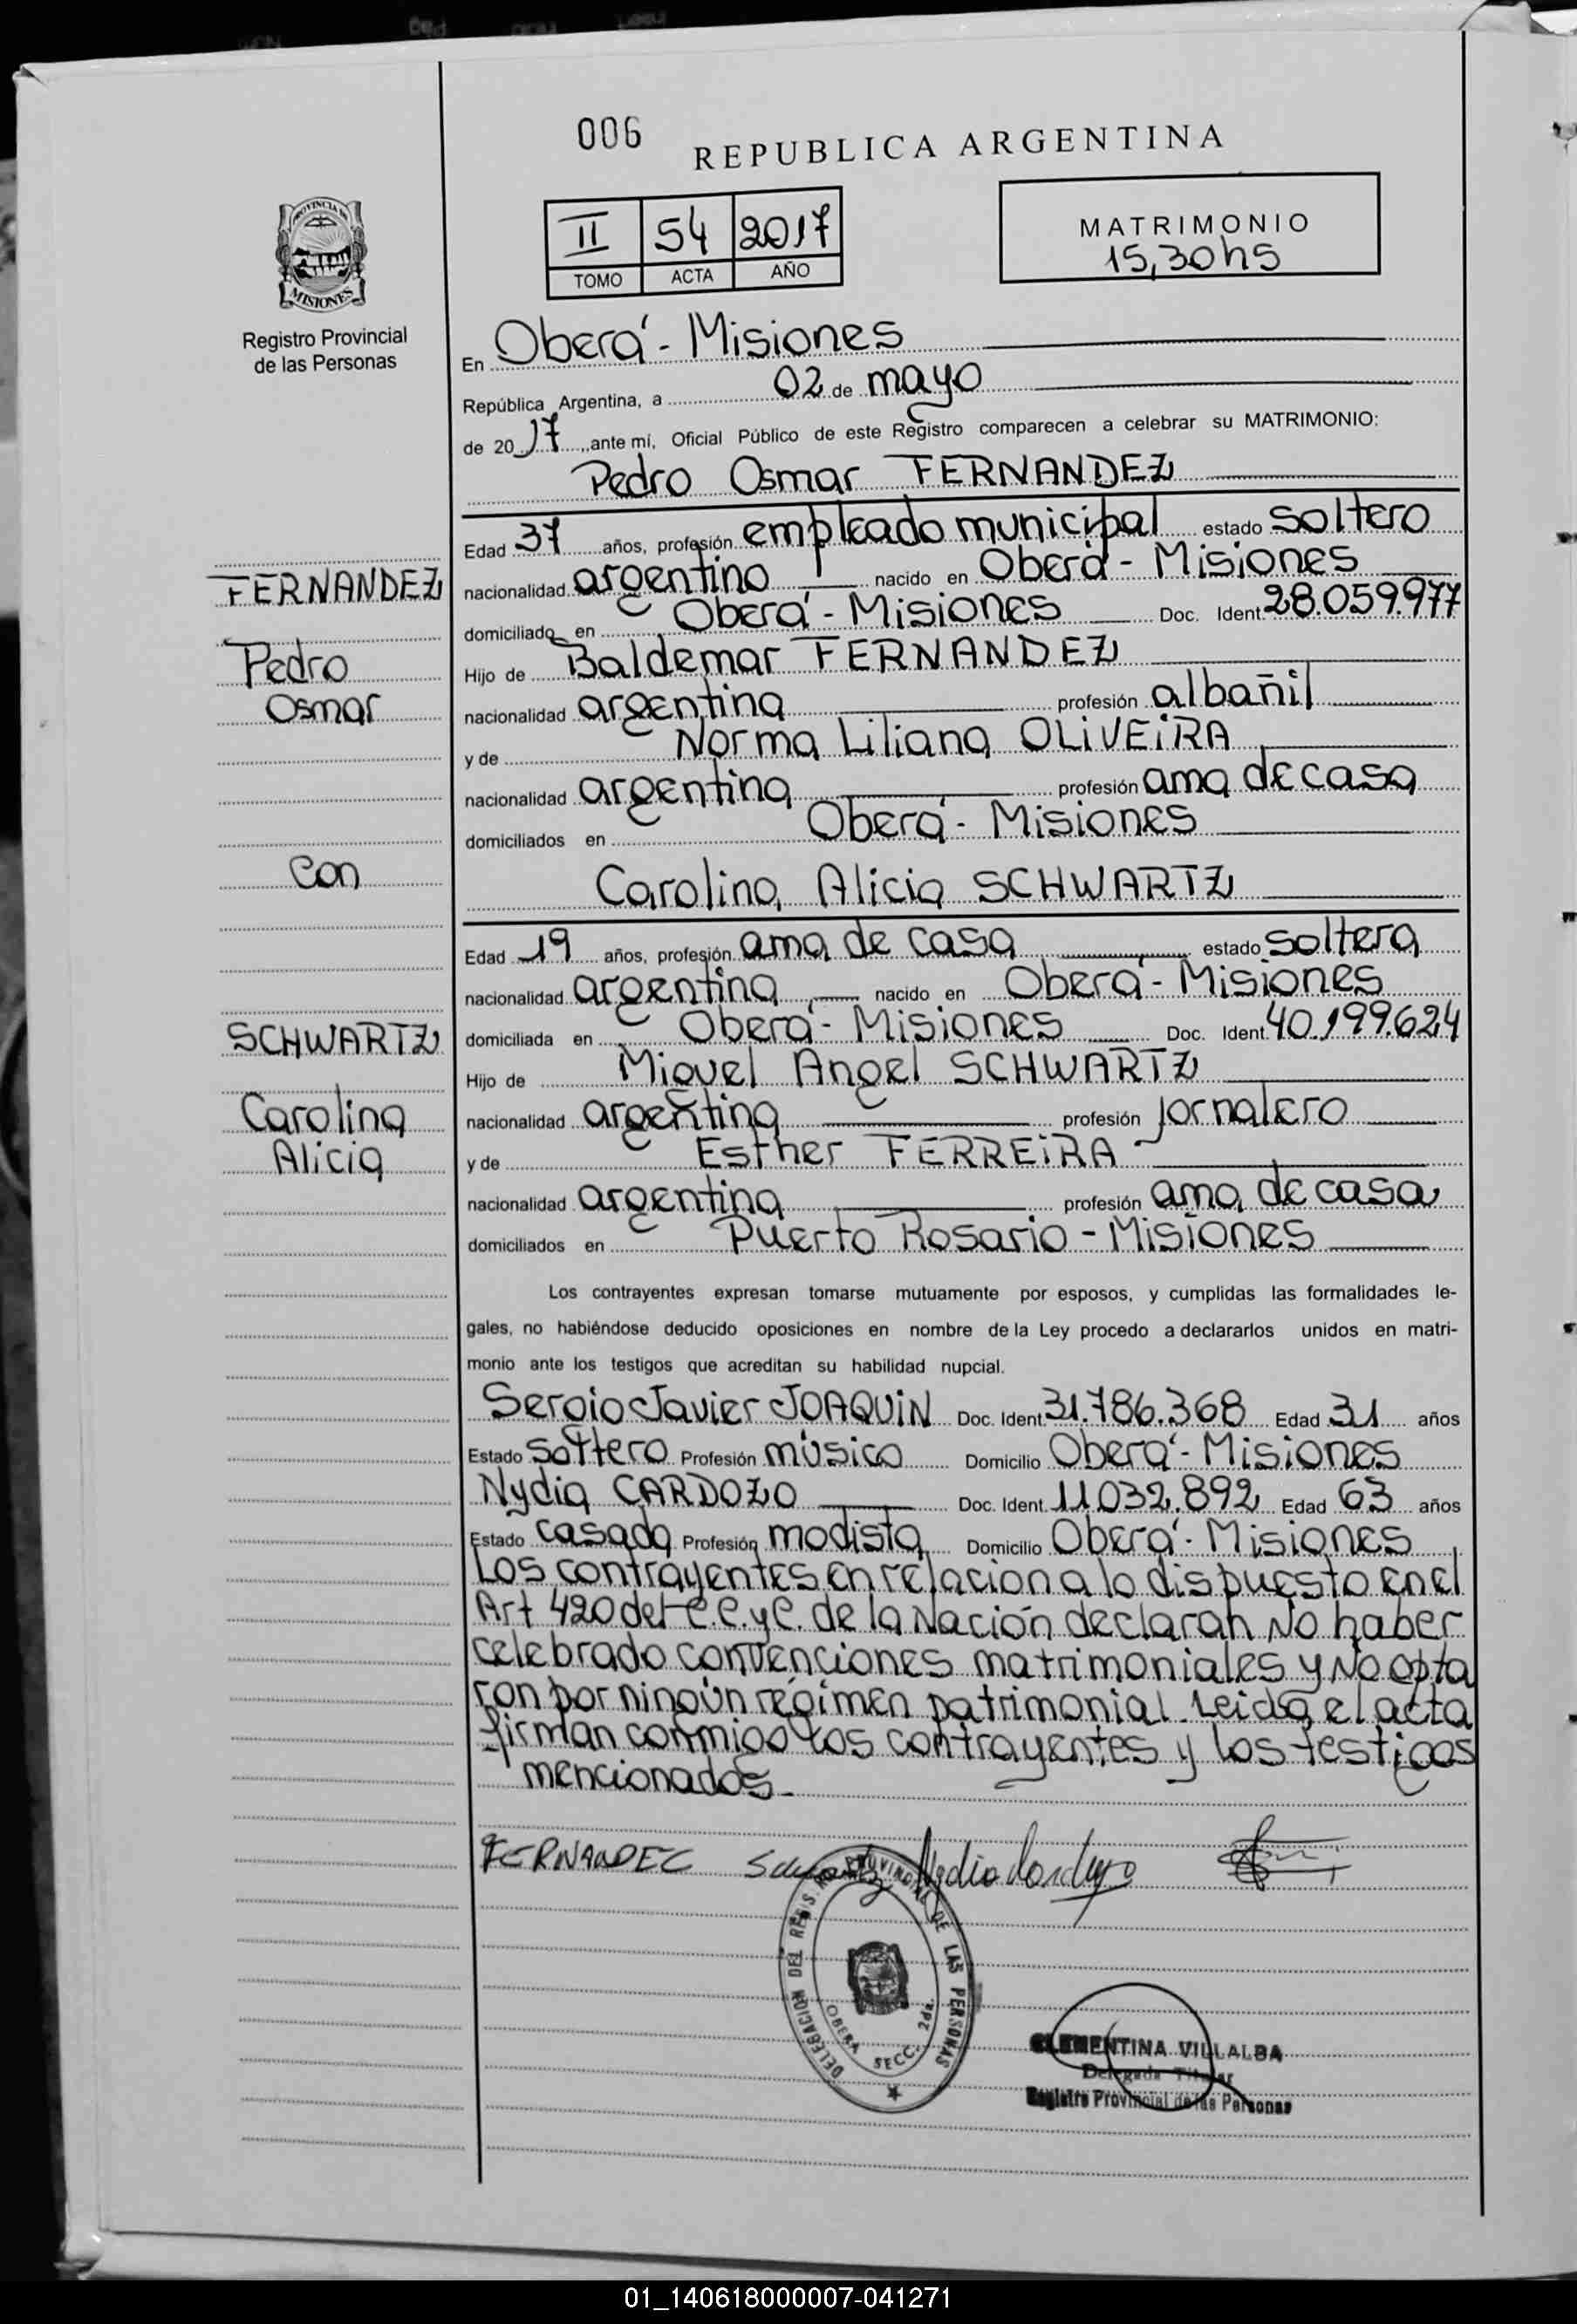 006
REPUBLICA ARGENTINA
PROVINCIA DE
MISIONES
Registro Provincial
de las Personas
II 54 2017
TOMO ACTA AÑO
MATRIMONIO
15,30hs
En Oberá - Misiones
República Argentina, a 02 de mayo
de 2017, ante mí, Oficial Público de este Registro comparecen a celebrar su MATRIMONIO:
Pedro Osmar FERNANDEZ
Edad 37 años, profesión empleado municipal estado soltero
FERNANDEZ
nacionalidad argentino nacido en Oberá - Misiones
domiciliado en Oberá - Misiones Doc. Ident. 28.059.977
Pedro
Hijo de Baldemar FERNANDEZ
Osmar
nacionalidad argentina profesión albañil
y de Norma Liliana OLiVEiRA
nacionalidad argentina profesión ama de casa
domiciliados en Oberá - Misiones
Con
Carolina Alicia SCHWARTZ
Edad 19 años, profesión ama de casa estado soltera
nacionalidad argentina nacido en Oberá - Misiones
SCHWARTZ
domiciliada en Oberá - Misiones Doc. Ident. 40.199.624
Hijo de Miguel Angel SCHWARTZ
Carolina
nacionalidad argentina profesión jornalero
Alicia
y de Esther FERREiRA
nacionalidad argentina profesión ama de casa
domiciliados en Puerto Rosario - Misiones
Los contrayentes expresan tomarse mutuamente por esposos, y cumplidas las formalidades le-
gales, no habiéndose deducido oposiciones en nombre de la Ley procedo a declararlos unidos en matri-
monio ante los testigos que acreditan su habilidad nupcial.
Sergio Javier JOAQUiN Doc. Ident. 31.786.368 Edad 31 años
Estado soltero Profesión músico Domicilio Oberá - Misiones
Nydia CARDOZO Doc. Ident. 11.032.892 Edad 63 años
Estado casada Profesión modista Domicilio Oberá - Misiones
Los contrayentes en relacion a lo dispuesto en el
Art 420 del C.C.yC. de la Nación declaran No haber
celebrado convenciones matrimoniales y No opta
ron por ningún régimen patrimonial. Leida el acta
firman conmigo los contrayentes y los testigos
mencionados.
FERNANDEC Schwartz Nydia Cardozo
DELEGACION DEL REGISTRO PROVINCIAL DE LAS PERSONAS
OBERA SECC. 2da.
CLEMENTINA VILLALBA
Delegada Titular
Registro Provincial de las Personas
01_140618000007-041271